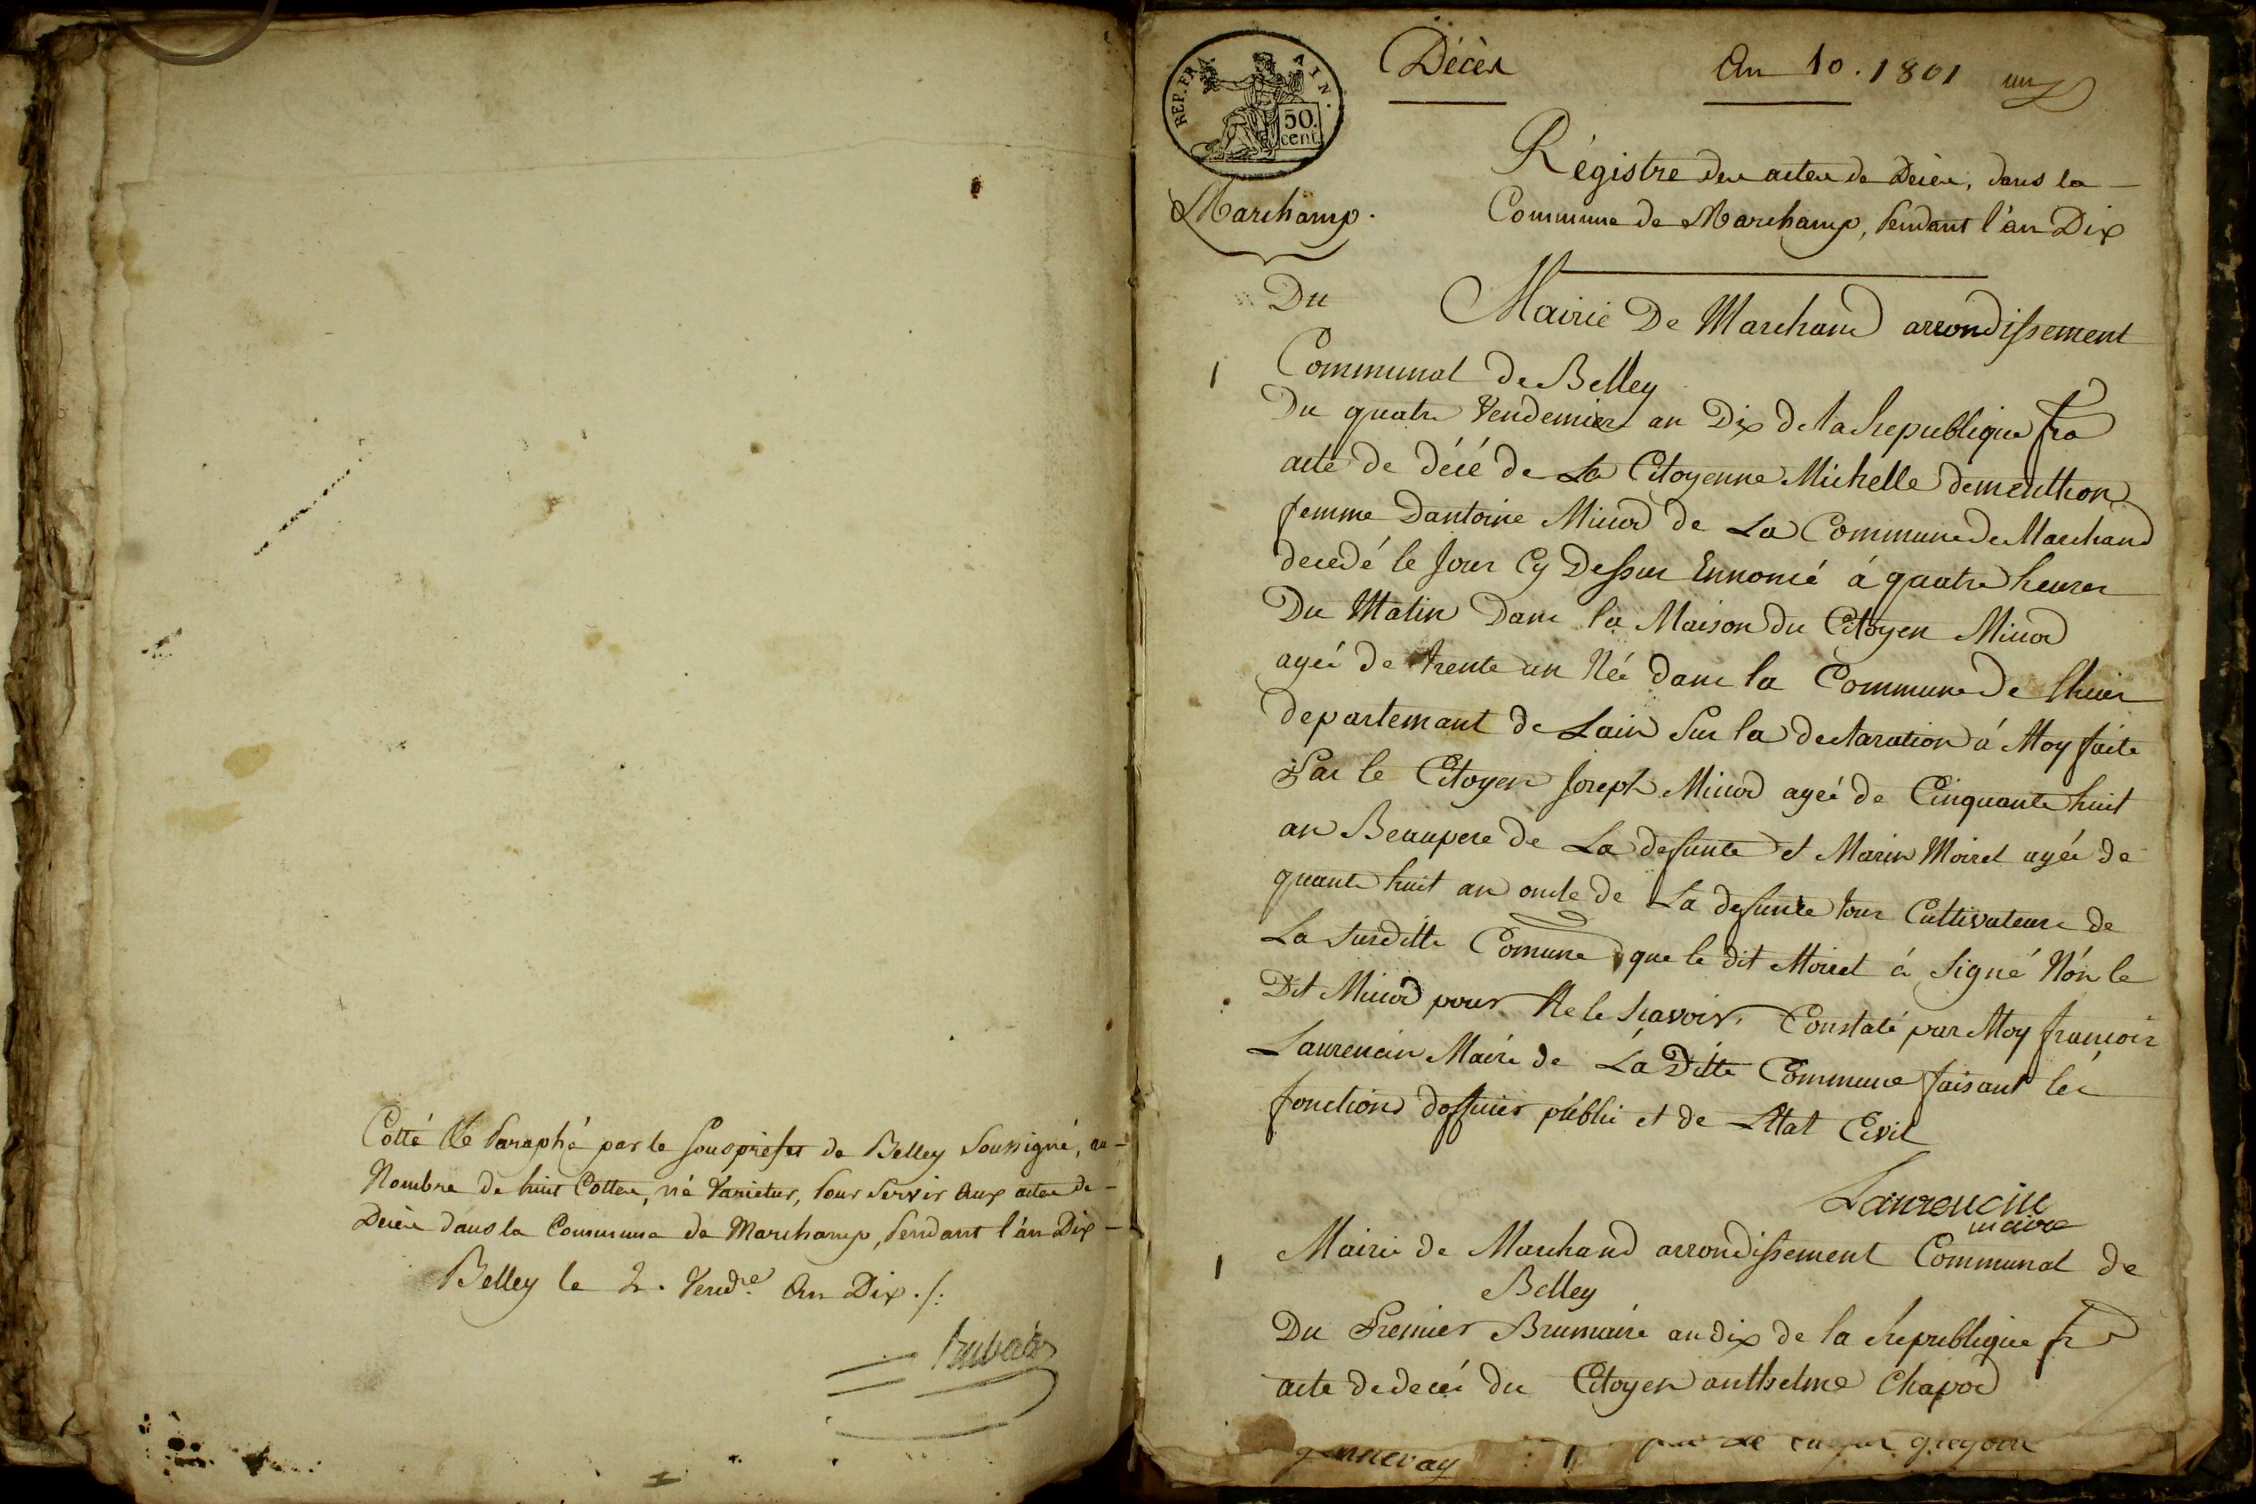 Cotté et Paraphé par le Sousprefet de Belley Soussigné, au
Nombre de huit Cottes, né Varietur, Pour Servir Aux actes de
Décès dans la Commune de Marchamp, Pendant l'an Dix
Belley le 2. Vend.re An Dix ./.
REP. FRA AIN.
50.
cent.
Décès
An 10. 1801
un
Marchamp.
Régistre des actes de Décès, dans la
Commune de Marchamp, Pendant l'an Dix
Du
Mairie De Marchand arrondissement
1
Communal de Belley
Du quatre Vendemier an Dix de la Republique fra
acte de décé de La Citoyenne Michelle demeuthon
femme Dantoine Micod de La Commune de Marchand
decedé le Jour Cy Dessus Ennoncé á quatre heures
Du Matin Dans la Maison du Citoyen Micod
ageé de trente un Né dans la Commune de lhuis
departemant de Lain Sur la declaration á Moy faite
Par le Citoyen Joseph Micod ageé de Cinquante huit
an Beaupere de La defunte et Marin Moiret agée de
quante huit an oncle de La defunte tous Cultivateurs de
La Susditte Comune que le dit Moiret á Signé Nón le
Dit Micod pour Ne le Scavoir. Constaté par Moy françois
Laurencin Maire de La Ditte Commune faisant lés
fonction dofficier públic et de Létat Civil
Laurencin
maire
1
Mairie de Marchand arrondissement Communal de
Belley
Du Premier Brumaire an dix de la Republique fr
acte de decéi du Citoyen anthelme Chapod